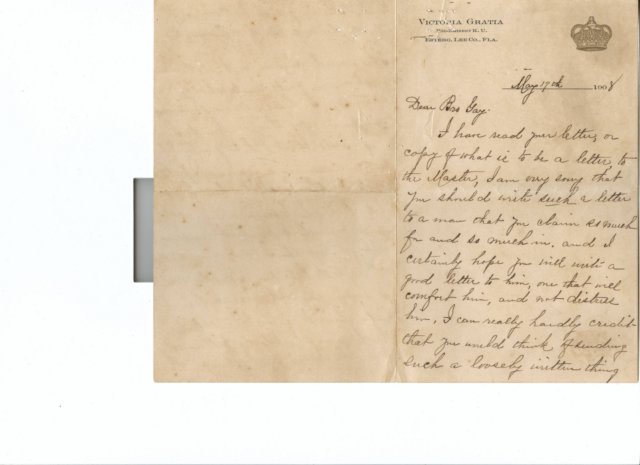 VICTORIA GRATIA
PRE-EMINENT K. U.
ESTERO, LEE CO., FLA.
May 17th 1908
Dear Bro Gay.
I have read your letter, or
copy of what is to be a letter, to
the Master, I am very sorry that
you should write such a letter
to a man that you claim so much
for and so much in. and I
certainly hope you will write a
good letter to him, one that will
comfort him, and not distress
him. I can really hardly credit
that you would think of sending
such a loosely written thing